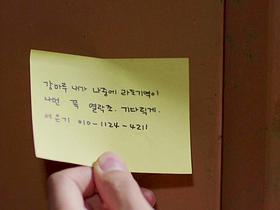 강마루 내가 나중에 라도 기억이
나면 꼭 연락줘. 기다릴게.
서은기 010-1124-4211